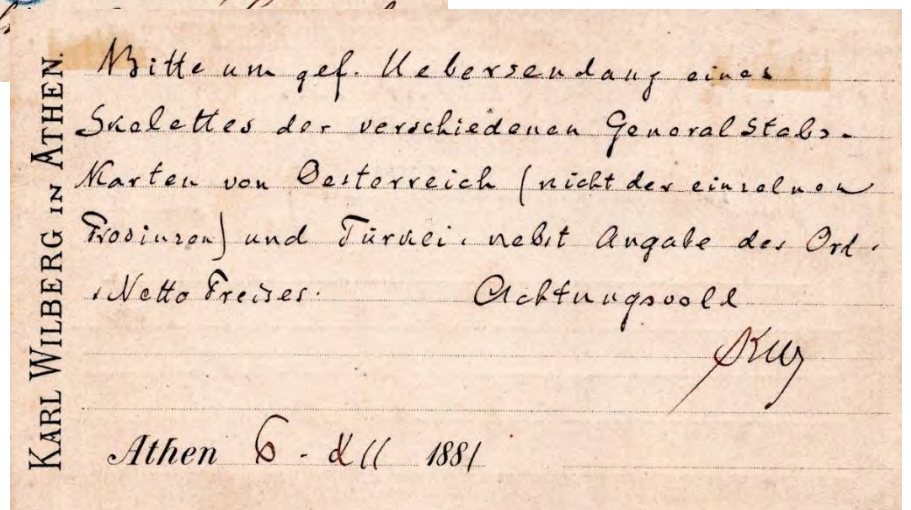 KARL WILBERG IN ATHEN.
Bitte um gef. Uebersendung eines
Skelettes der verschiedenen Generalstabs-
Karten von Oesterreich (nicht der einzelnen
Provinzen) und Türkei. nebst Angabe des Ord.
. Netto Preises. Achtungsvoll
Athen 6 - XII 1881